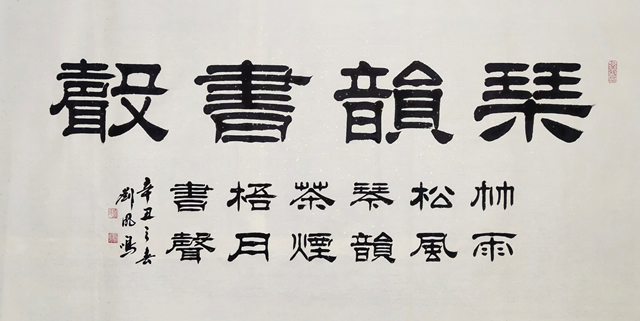 琹韻書聲
竹雨
松風
琴韻
茶煙
梧月
書聲
辛丑之春
劉鳳鳴